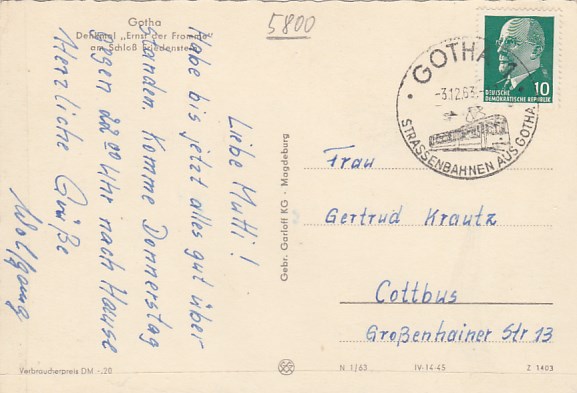 Gotha
Denkmal „Ernst der Fromme"
am Schloß Friedenstein
5800
Liebe Mutti!
Habe bis jetzt alles gut über
standen. Komme Donnerstag
gegen 22 00 Uhr nach Hause
Herzliche Grüße
Wolfgang
Gebr. Garloff KG - Magdeburg
GOTHA 1
-3.12.63
STRASSENBAHNEN AUS GOTHA
10
DEUTSCHE
DEMOKRATISCHE REPUBLIK
Frau
Gertrud Krautz
Cottbus
Großenhainer Str 13
Verbraucherpreis DM -.20
N 1/63
IV-14-45
Z 1403